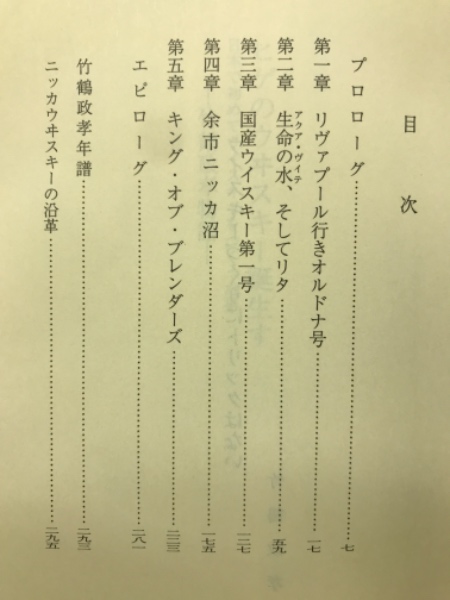 目次
プロローグ……………………七
第一章 リヴァプール行きオルドナ号……………………一七
第二章 生命の水、そしてリタ……………………五九
アクア・ヴイテ
第三章 国産ウイスキー第一号……………………一二七
第四章 余市ニッカ沼……………………一七五
第五章 キング・オブ・ブレンダーズ……………………二二三
エピローグ……………………二八一
竹鶴政孝年譜……………………二九三
ニッカウヰスキーの沿革……………………二九五